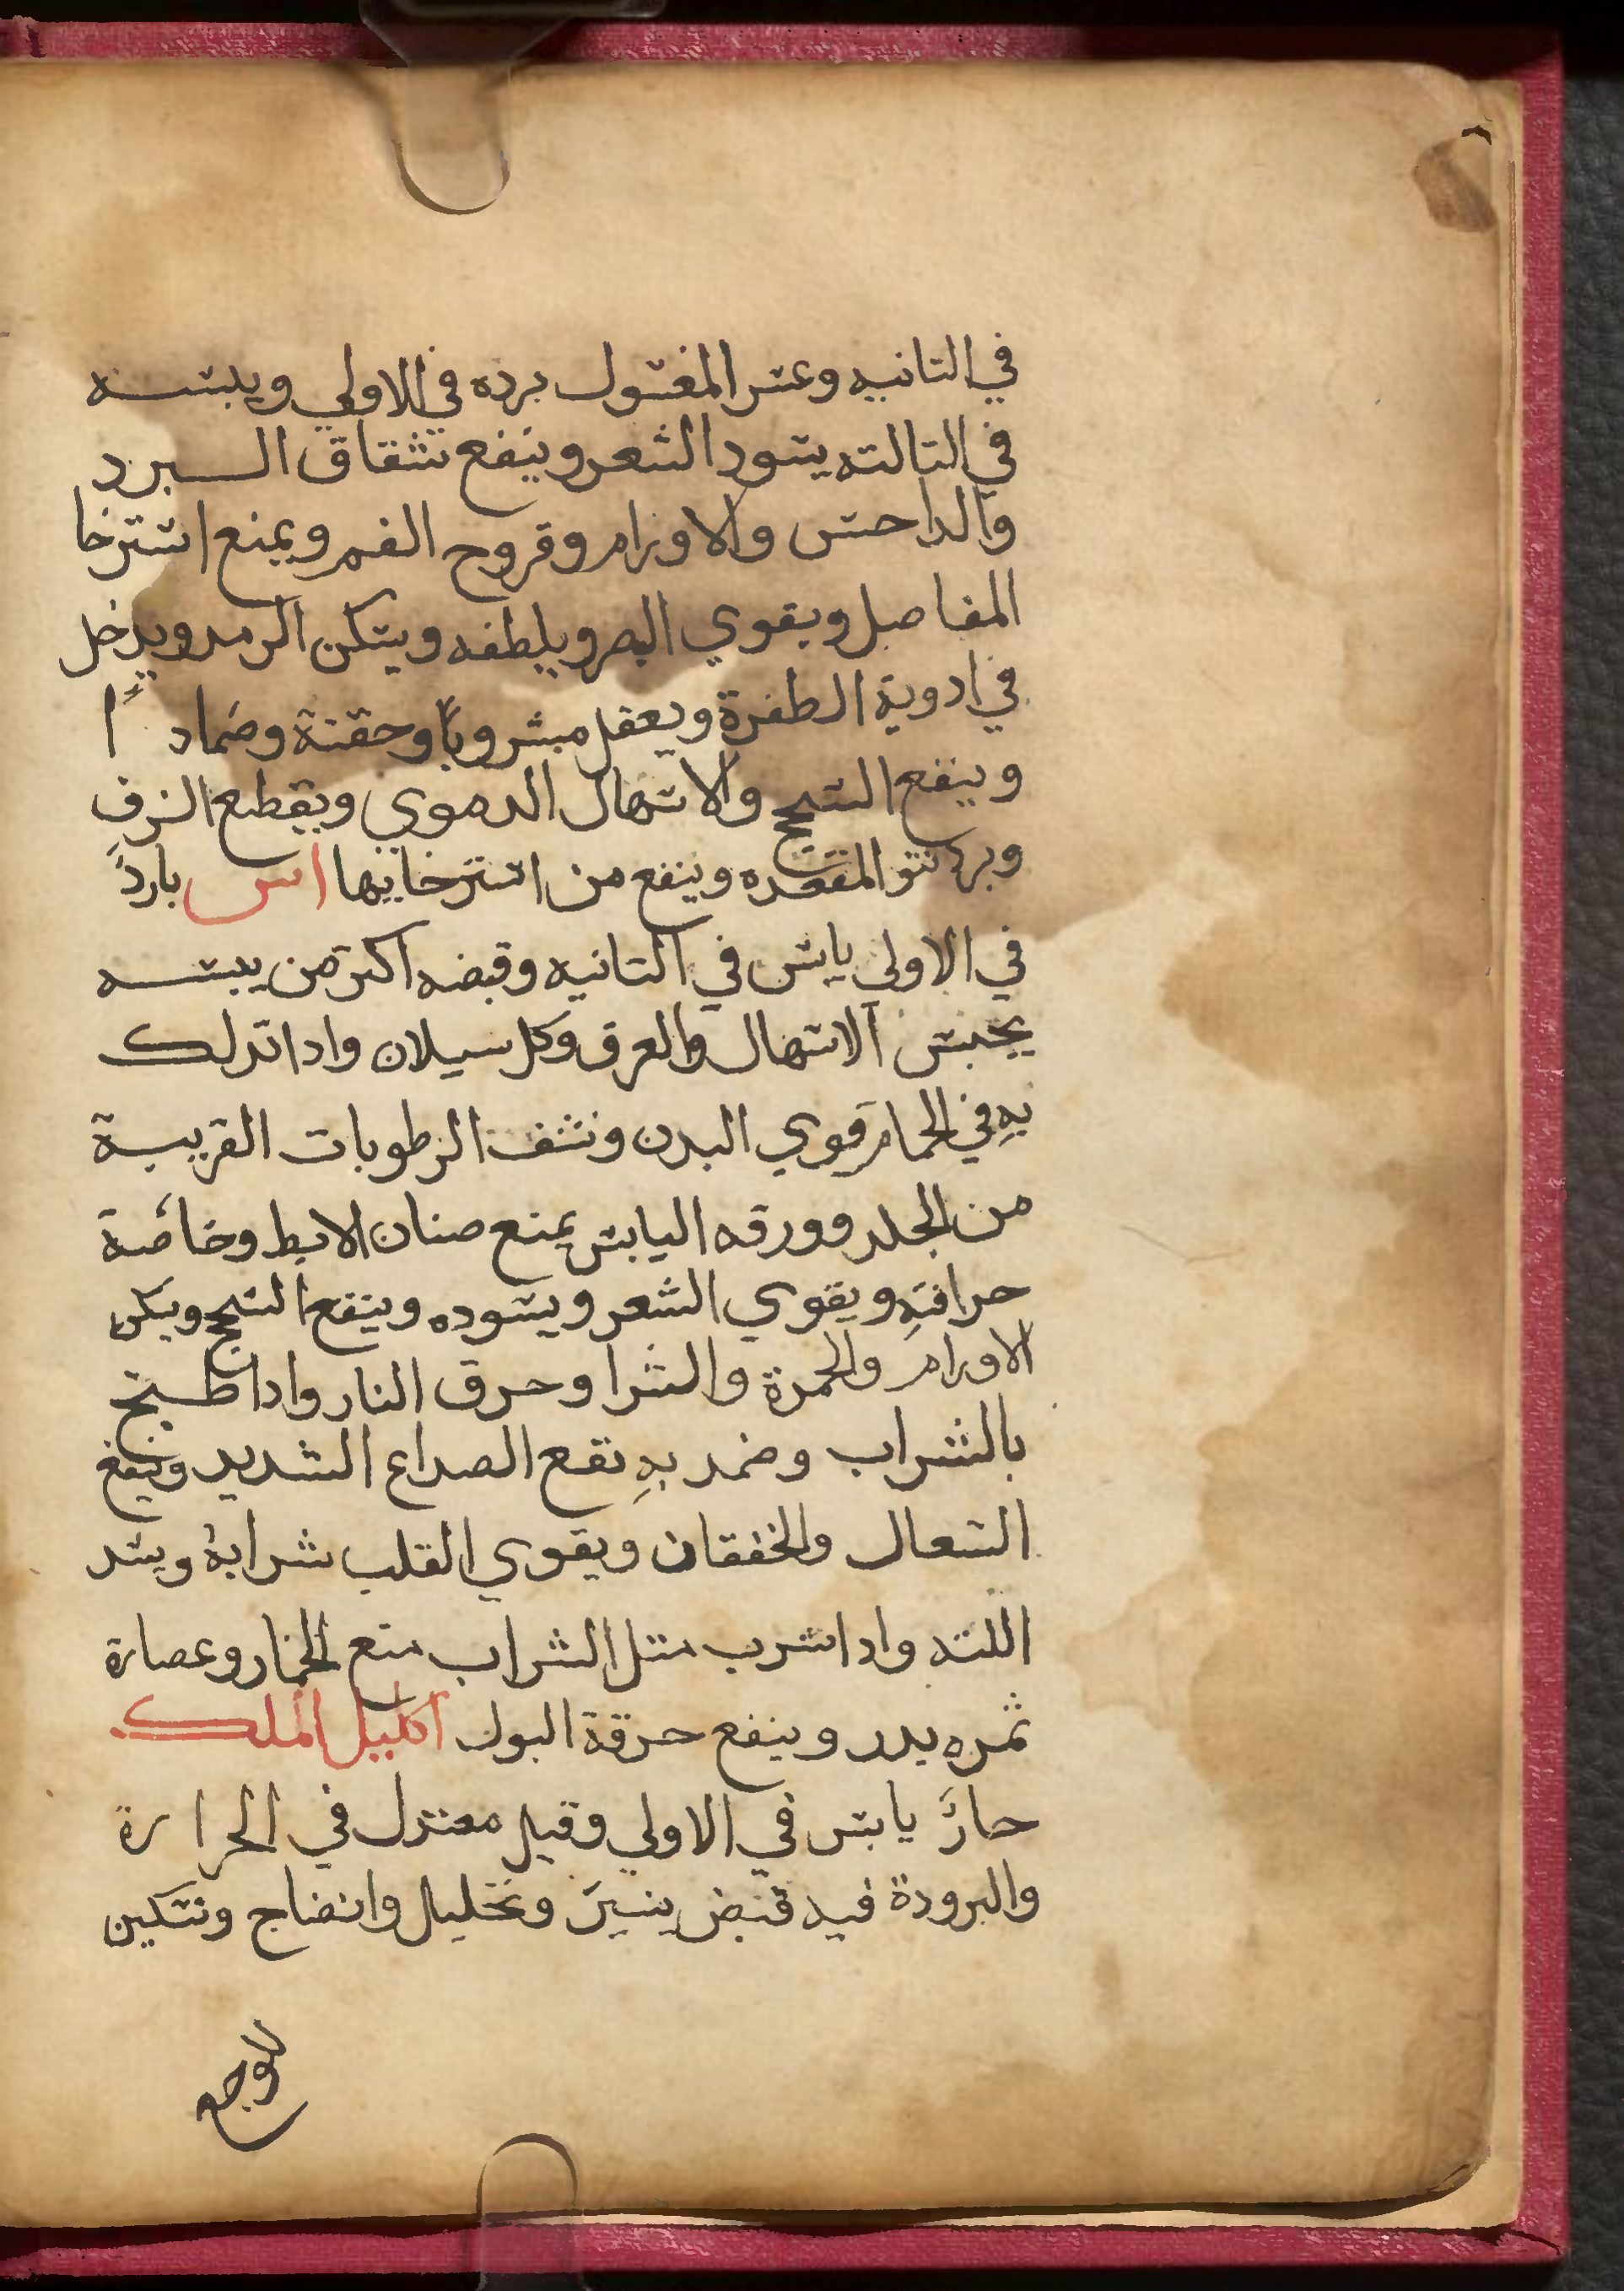 في التانيه وغير المغسول برده في الاولي ويبسـه
في التالته يسود الشعر وينفع شقاق الـبرد
والداحس والاورام وقروح الفم ويمنع استرخا
المفاصل ويقوي البصر ويلطفه ويسكن الرمد ويدخل
في ادوية الظفرة ويعقل مشروباً وحقنة وضماد اً
وينفع السحج والاسهال الدموي ويقطع النزف
ويرد نتو المقعده وينفع من استرخايها اس بارد
في الاولي يابس في التانيه وقبضه اكتر من يبسـه
يحبس الاسهال والعرق وكل سيلان وادا تدلك
بهِ في الحمام قوي البدن ونشف الرطوبات الغريبـة
من الجلد وورقه اليابس يمنع صنان الابط وخاصّة
حراقتهِ ويقوي الشعر ويسوده وينفع السحج ويسكن
الاورام والحمرة والشرا وحرق النار وادا طـبخ
بالشراب وضمد بهِ نفع الصداع الشديد وينفع
السعال والخفقان ويقوي القلب شرابهُ ويشد
اللته وادا شرب متل الشراب منع الخمار وعصارة
ثمره يدر وينفع حرقة البول اكليل الملك
حارً يابس في الاولي وقيل معتدل في الحرارة
والبرودة فيه قبض يسيرَ وتحليل وانضاج وتسكين
للوجع